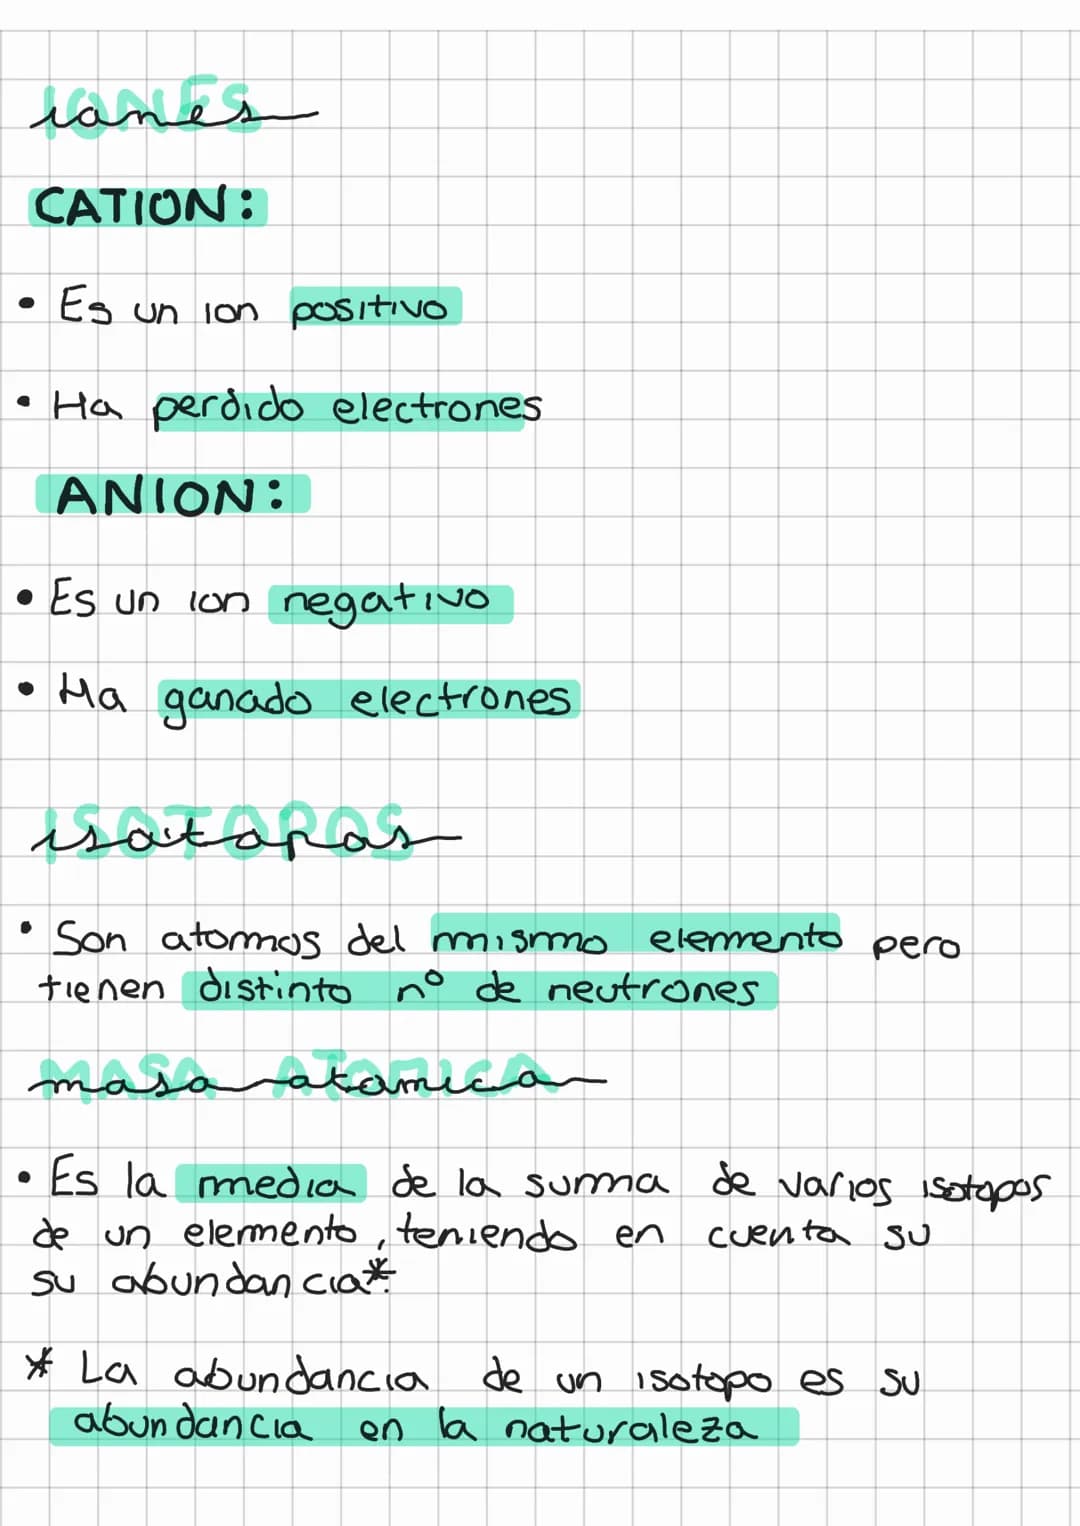 IONES
iones
CATION:
• Es un ion positivo
• Ha perdido electrones
ANION:
• Es un ion negativo
• Ha ganado electrones
ISOTOPOS
isotopos
• Son atomos del mismo elemento pero
tienen distinto nº de neutrones
MASA ATOMICA
masa atomica
• Es la media de la suma de varios isotopos
de un elemento, teniendo en cuenta su
su abundancia*.
* La abundancia de un isotopo es su
abundancia en la naturaleza